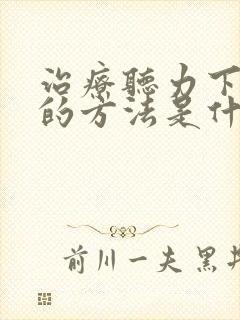 治療聽力下
的方法是什
前川一夫 黑